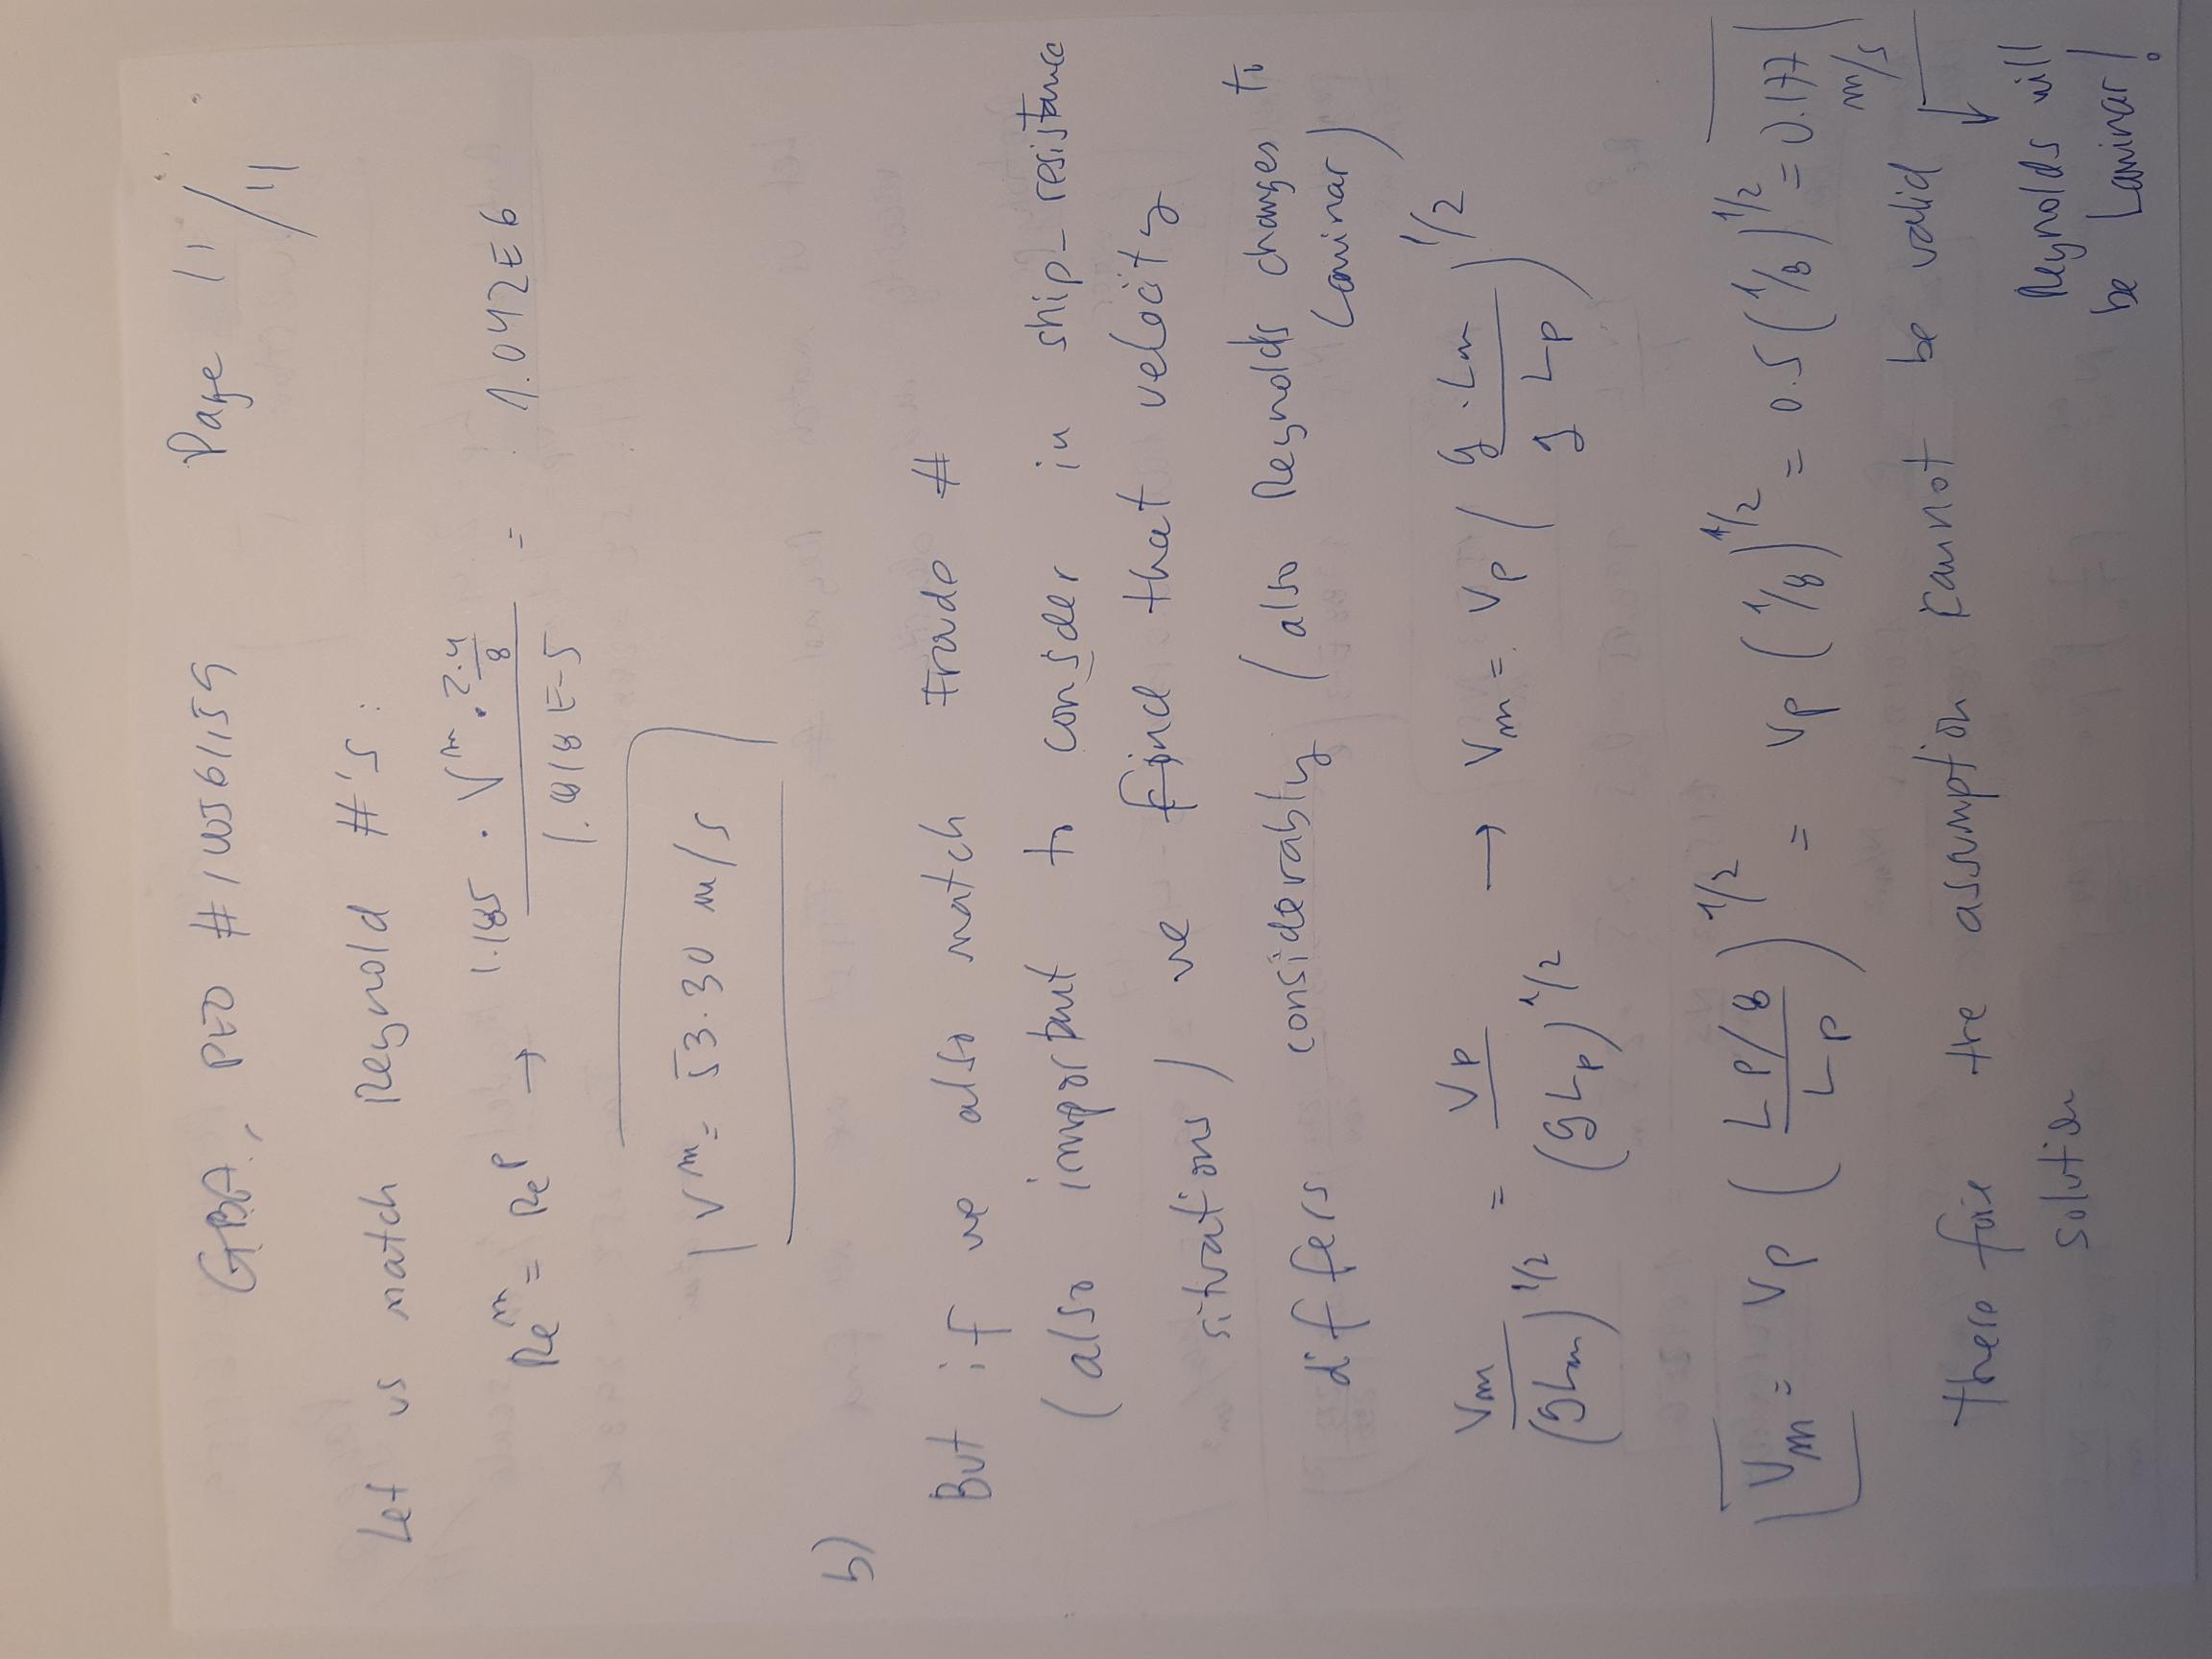 G.B.A, PEO #1WJ61159 Page 11/11
Let us match Reynold #'s:
Re^m = Re^P → (1.185 · V^m · 2.4/8) / 1.818E-5 = 1.042E6
V^m = 53.30 m/s
b)
But if we also match Froude #
(also important to consider in ship-resistance
situations) we find that velocity
differs considerably (also Reynolds changes to
Laminar)
Vm/(gLm)^1/2 = Vp/(gLp)^1/2 → Vm = Vp (g·Lm / g Lp)^1/2
Vm = Vp (LP/8 / Lp)^1/2 = Vp (1/8)^1/2 = 0.5 (1/8)^1/2 = 0.177
m/s
therefore the assumption cannot be valid
solution
Reynolds will
be Laminar!